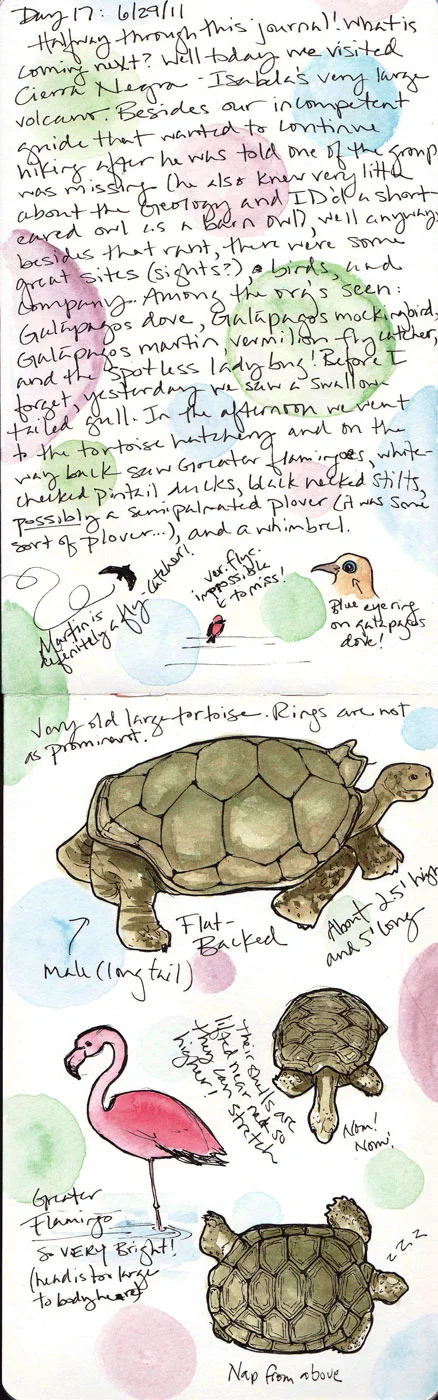 Day 17: 6/29/11
Halfway through this journal! What is
coming next? Well today we visited
Cierra Negra - Isabela's very large
volcano. Besides our incompetent
guide that wanted to continue
hiking after he was told one of the group
was missing (he also knew very little
about the Geology and ID'd a short-
eared owl as a barn owl), well anyway,
besides that rant, there were some
great sites (sights?), birds, and
company. Among the org's seen:
Galápagos dove, Galápagos mockingbird,
Galápagos martin, vermilion flycatcher,
and the spotless ladybug! Before I
forget, yesterday we saw a swallow
tailed gull. In the afternoon we went
to the tortoise hatchery and on the
way back saw Greater flamingoes, white-
cheeked pintail ducks, black necked stilts,
possibly a semipalmated plover (it was some
sort of plover...), and a whimbrel.
Martin is
definitely a fly-catcher!
ver. flys-
impossible
to miss!
Blue eye ring
on galápagos
dove!
Very old large tortoise. Rings are not
as prominant.
Flat-
Backed
About 2.5' high
and 5' long
Male (long tail)
Their shells are
lifted near neck so
they can stretch
higher!
Nom!
Nom!
Greater
Flamingo
So VERY Bright!
(head is too large
to body here)
zzz
Nap from above